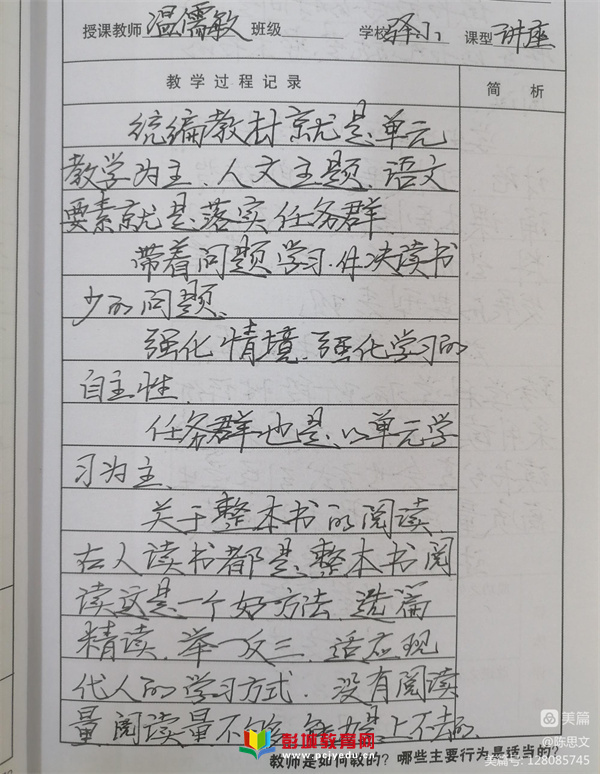 授课教师 温儒敏 班级 学校 驿小 课型 讲座
教学过程记录 简析
统编教材就是单元
教学为主、人文主题、语文
要素就是落实任务群
带着问题学习.解决读书
少的问题、
强化情境、强化学习的
自主性.
任务群也是以单元学
习为主、
关于整本书的阅读.
古人读书都是整本书阅
读这是一个好方法.选篇
精读.举一反三.适应现
代人的学习方式.没有阅读
量,阅读量不够,能力是上不去的.
教师是如何教的？哪些主要行为是适当的？
彭城教育网
www.pcjywz.com
美篇
@陈思文
美篇号: 128085745